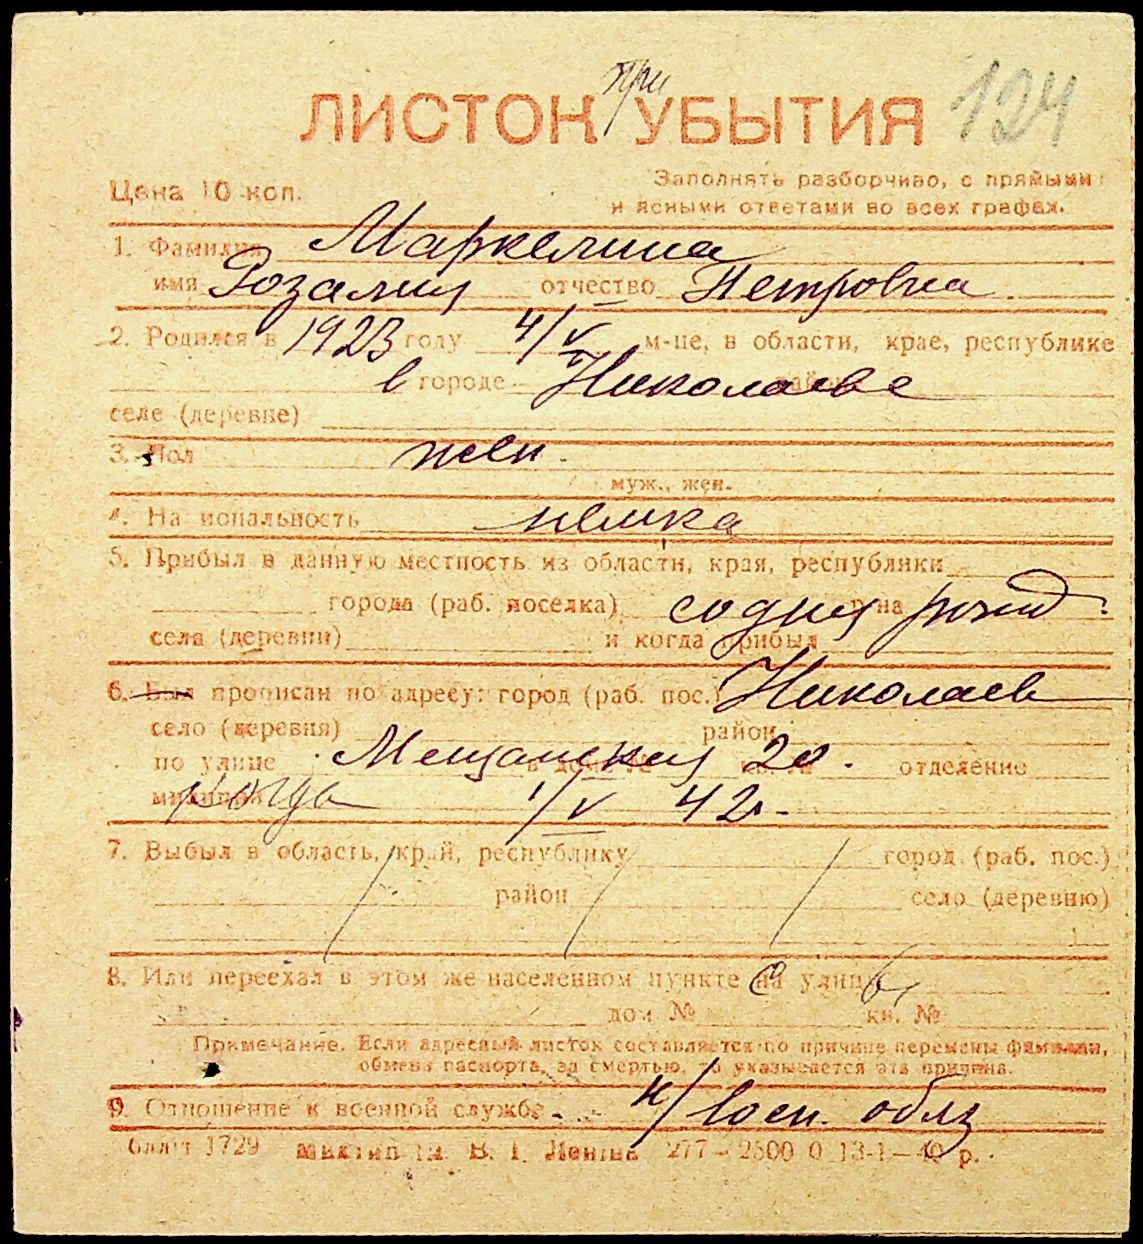 при
ЛИСТОК УБЫТИЯ 124
Цена 10 коп.
Заполнять разборчиво, с прямыми
и ясными ответами во всех графах.
1. Фамилия Маркелина
имя Розалия отчество Петровна
2. Родился в 1923 году 4/V м-це, в области, крае, республике
в городе Николаеве
селе (деревне)
3. Пол жен.
муж., жен.
4. Национальность немка
5. Прибыл в данную местность из области, края, республики
города (раб. поселка) со дня р-на рожд.
села (деревни) и когда прибыл
6. Был прописан по адресу: город (раб. пос.) Николаев
село (деревня) район
по улице Мещанская 20. отделение
милиции когда 1/V 42 г.
7. Выбыл в область, край, республику город (раб. пос.)
район село (деревню)
8. Или переехал в этом же населенном пункте на улицу
дом № кв. №
Примечание. Если адресный листок составляется по причине перемены фамилии,
обмена паспорта, за смертью, то указывается эта причина.
9. Отношение к военной службе н/воен. обяз
1729 В. І. Леніна 277–2500 0 13-1–40 р.